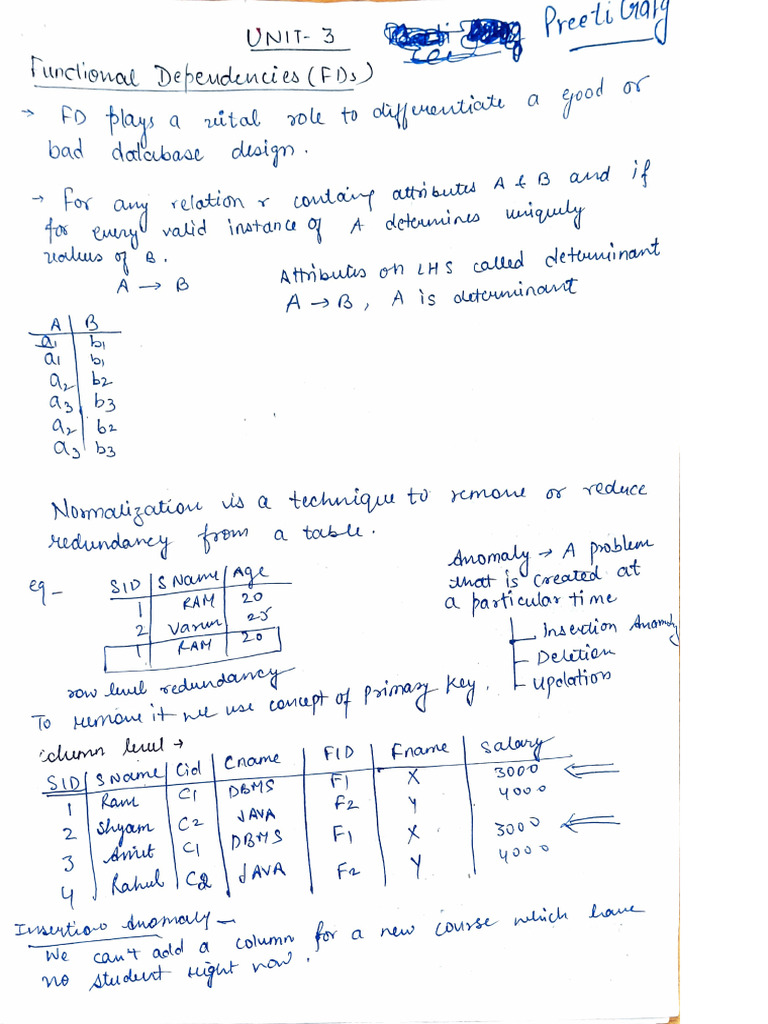 UNIT-3
Preeti Garg
Functional Dependencies (FDs)
→ FD plays a vital role to differentiate a good or
bad database design.
→ For any relation r containg attributes A & B and if
for every valid instance of A determines uniquely
values of B.
A → B
Attributes on LHS called determinant
A → B, A is determinant
A | B
a1 | b1
a1 | b1
a2 | b2
a3 | b3
a2 | b2
a3 | b3
Normalization is a technique to remove or reduce
redundancy from a table.
eg –
SID | SName | Age
1 | RAM | 20
2 | Varun | 25
1 | RAM | 20
row level redundancy
Anomaly → A problem
that is created at
a particular time
Insertion Anomaly
Deletion
Updation
To remove it we use concept of primary key.
column level →
SID | SName | Cid | Cname | FID | Fname | Salary
1 | Ram | C1 | DBMS | F1 | X | 3000
2 | Shyam | C2 | JAVA | F2 | Y | 4000
3 | Amit | C1 | DBMS | F1 | X | 3000
4 | Rahul | C2 | JAVA | F2 | Y | 4000
Insertion Anomaly –
We can't add a column for a new course which have
no student right now.